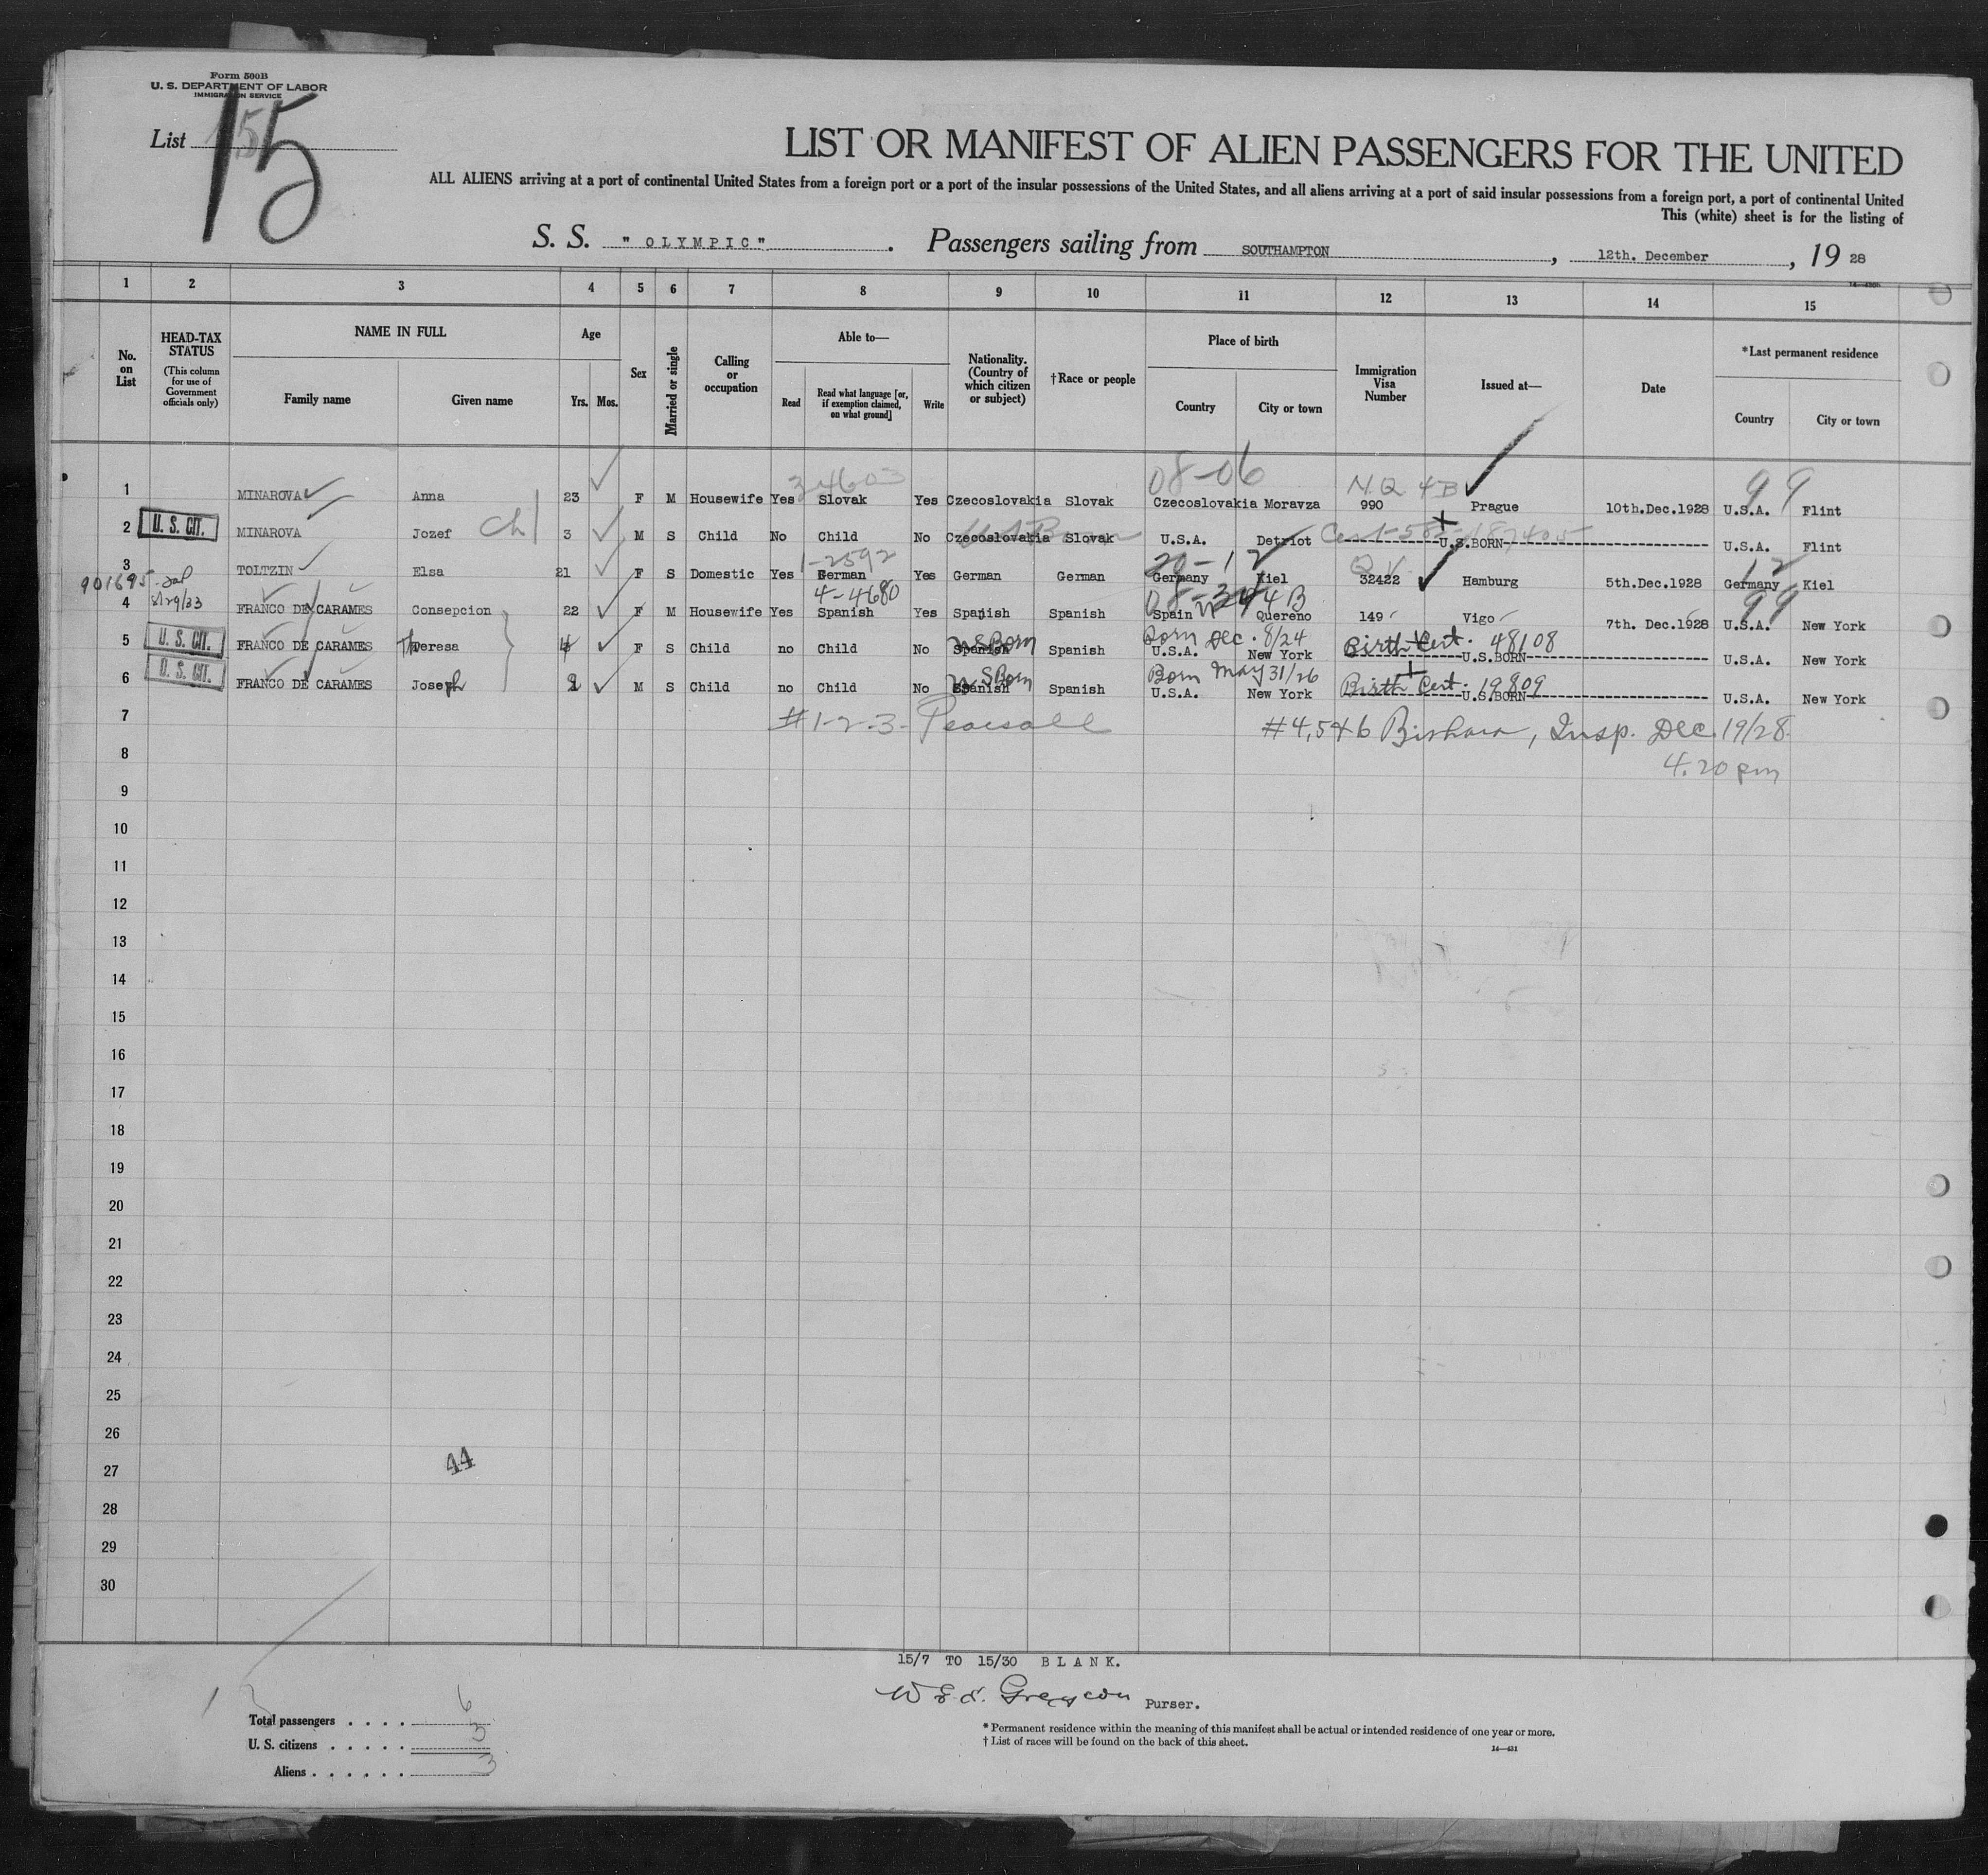 Form 500B
U. S. DEPARTMENT OF LABOR
IMMIGRATION SERVICE
List 15
LIST OR MANIFEST OF ALIEN PASSENGERS FOR THE UNITED
ALL ALIENS arriving at a port of continental United States from a foreign port or a port of the insular possessions of the United States, and all aliens arriving at a port of said insular possessions from a foreign port, a port of continental United
This (white) sheet is for the listing of
S. S. "OLYMPIC". Passengers sailing from SOUTHAMPTON, 12th. December, 19 28
1 2 3 4 5 6 7 8 9 10 11 12 13 14 15
No. on List
HEAD-TAX STATUS
(This column for use of Government officials only)
NAME IN FULL
Family name
Given name
Age
Yrs. Mos.
Sex
Married or single
Calling or occupation
Able to—
Read
Read what language [or, if exemption claimed, on what ground]
Write
Nationality. (Country of which citizen or subject)
†Race or people
Place of birth
Country
City or town
Immigration Visa Number
Issued at—
Date
*Last permanent residence
Country
City or town
34603 08-06 N.Q 4B 99
1 MINAROVA Anna 23 F M Housewife Yes Slovak Yes Czecoslovakia Slovak Czecoslovakia Moravza 990 Prague 10th.Dec.1928 U.S.A. Flint
2 U. S. CIT. MINAROVA Jozef ch 3 M S Child No Child No Czecoslovakia Slovak U.S.A. Detriot U.S.BORN U.S.A. Flint
1-2592 20-12 Q.V. 12
3 TOLTZIN Elsa 21 F S Domestic Yes German Yes German German Germany Kiel 32422 Hamburg 5th.Dec.1928 Germany Kiel
901695
4-4680 08-34 4B 99
4 FRANCO DE CARAMES Consepcion 22 F M Housewife Yes Spanish Yes Spanish Spanish Spain Quereno 149 Vigo 7th. Dec.1928 U.S.A. New York
U S Born Born Dec. 8/24 Birth Cert. 48108
5 U. S. CIT. FRANCO DE CARAMES Theresa 4 F S Child no Child No Spanish Spanish U.S.A. New York U.S.BORN U.S.A. New York
U S Born Born May 31/26 Birth Cert. 19809
6 U. S. CIT. FRANCO DE CARAMES Joseph 2 M S Child no Child No Spanish Spanish U.S.A. New York U.S.BORN U.S.A. New York
7 #1-2-3- Pearsall #4,5+6 Bishara, Insp. Dec. 19/28
8 4.20 pm
9
10
11
12
13
14
15
16
17
18
19
20
21
22
23
24
25
26
27 44
28
29
30
15/7 TO 15/30 BLANK.
Purser.
Total passengers . . . . 6
U. S. citizens . . . . . 3
Aliens . . . . . . 3
* Permanent residence within the meaning of this manifest shall be actual or intended residence of one year or more.
† List of races will be found on the back of this sheet.
14—431